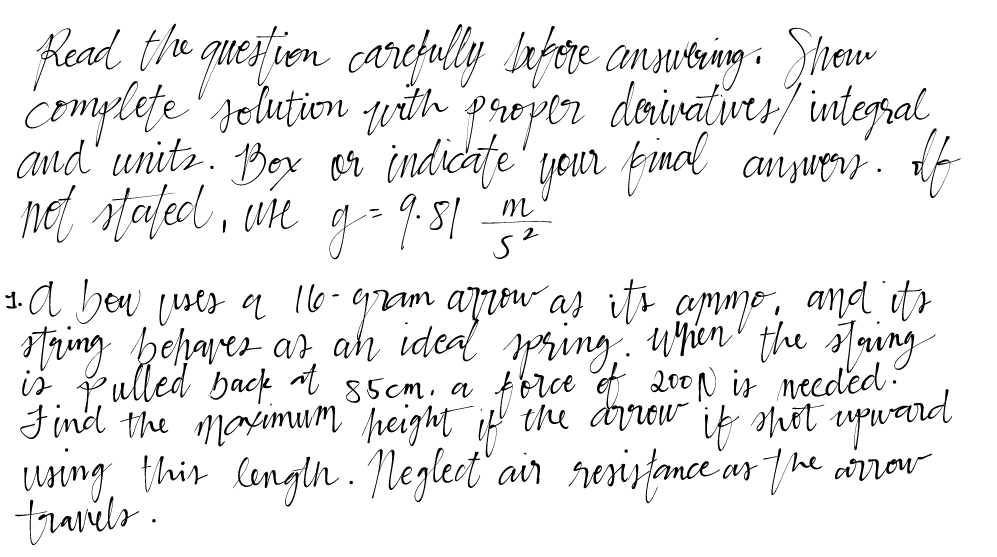 Read the question carefully before answering. Show
complete solution with proper derivatives/integral
and units. Box or indicate your final answers. If
not stated, use g = 9.81 m/s²
1. A bow uses a 16-gram arrow as its ammo, and its
string behaves as an ideal spring. When the string
is pulled back at 85cm, a force of 200N is needed.
Find the maximum height if the arrow if shot upward
using this length. Neglect air resistance as the arrow
travels.